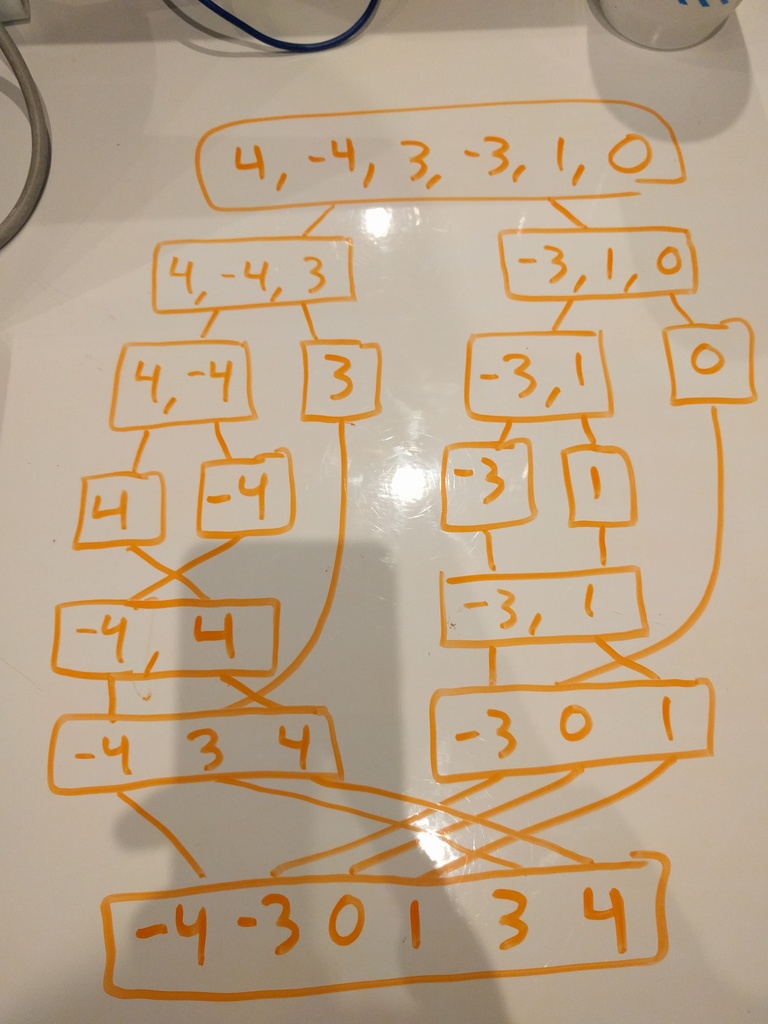 4, -4, 3, -3, 1, 0
4, -4, 3
-3, 1, 0
4, -4
3
-3, 1
0
4
-4
-3
1
-4, 4
-3, 1
-4 3 4
-3 0 1
-4 -3 0 1 3 4